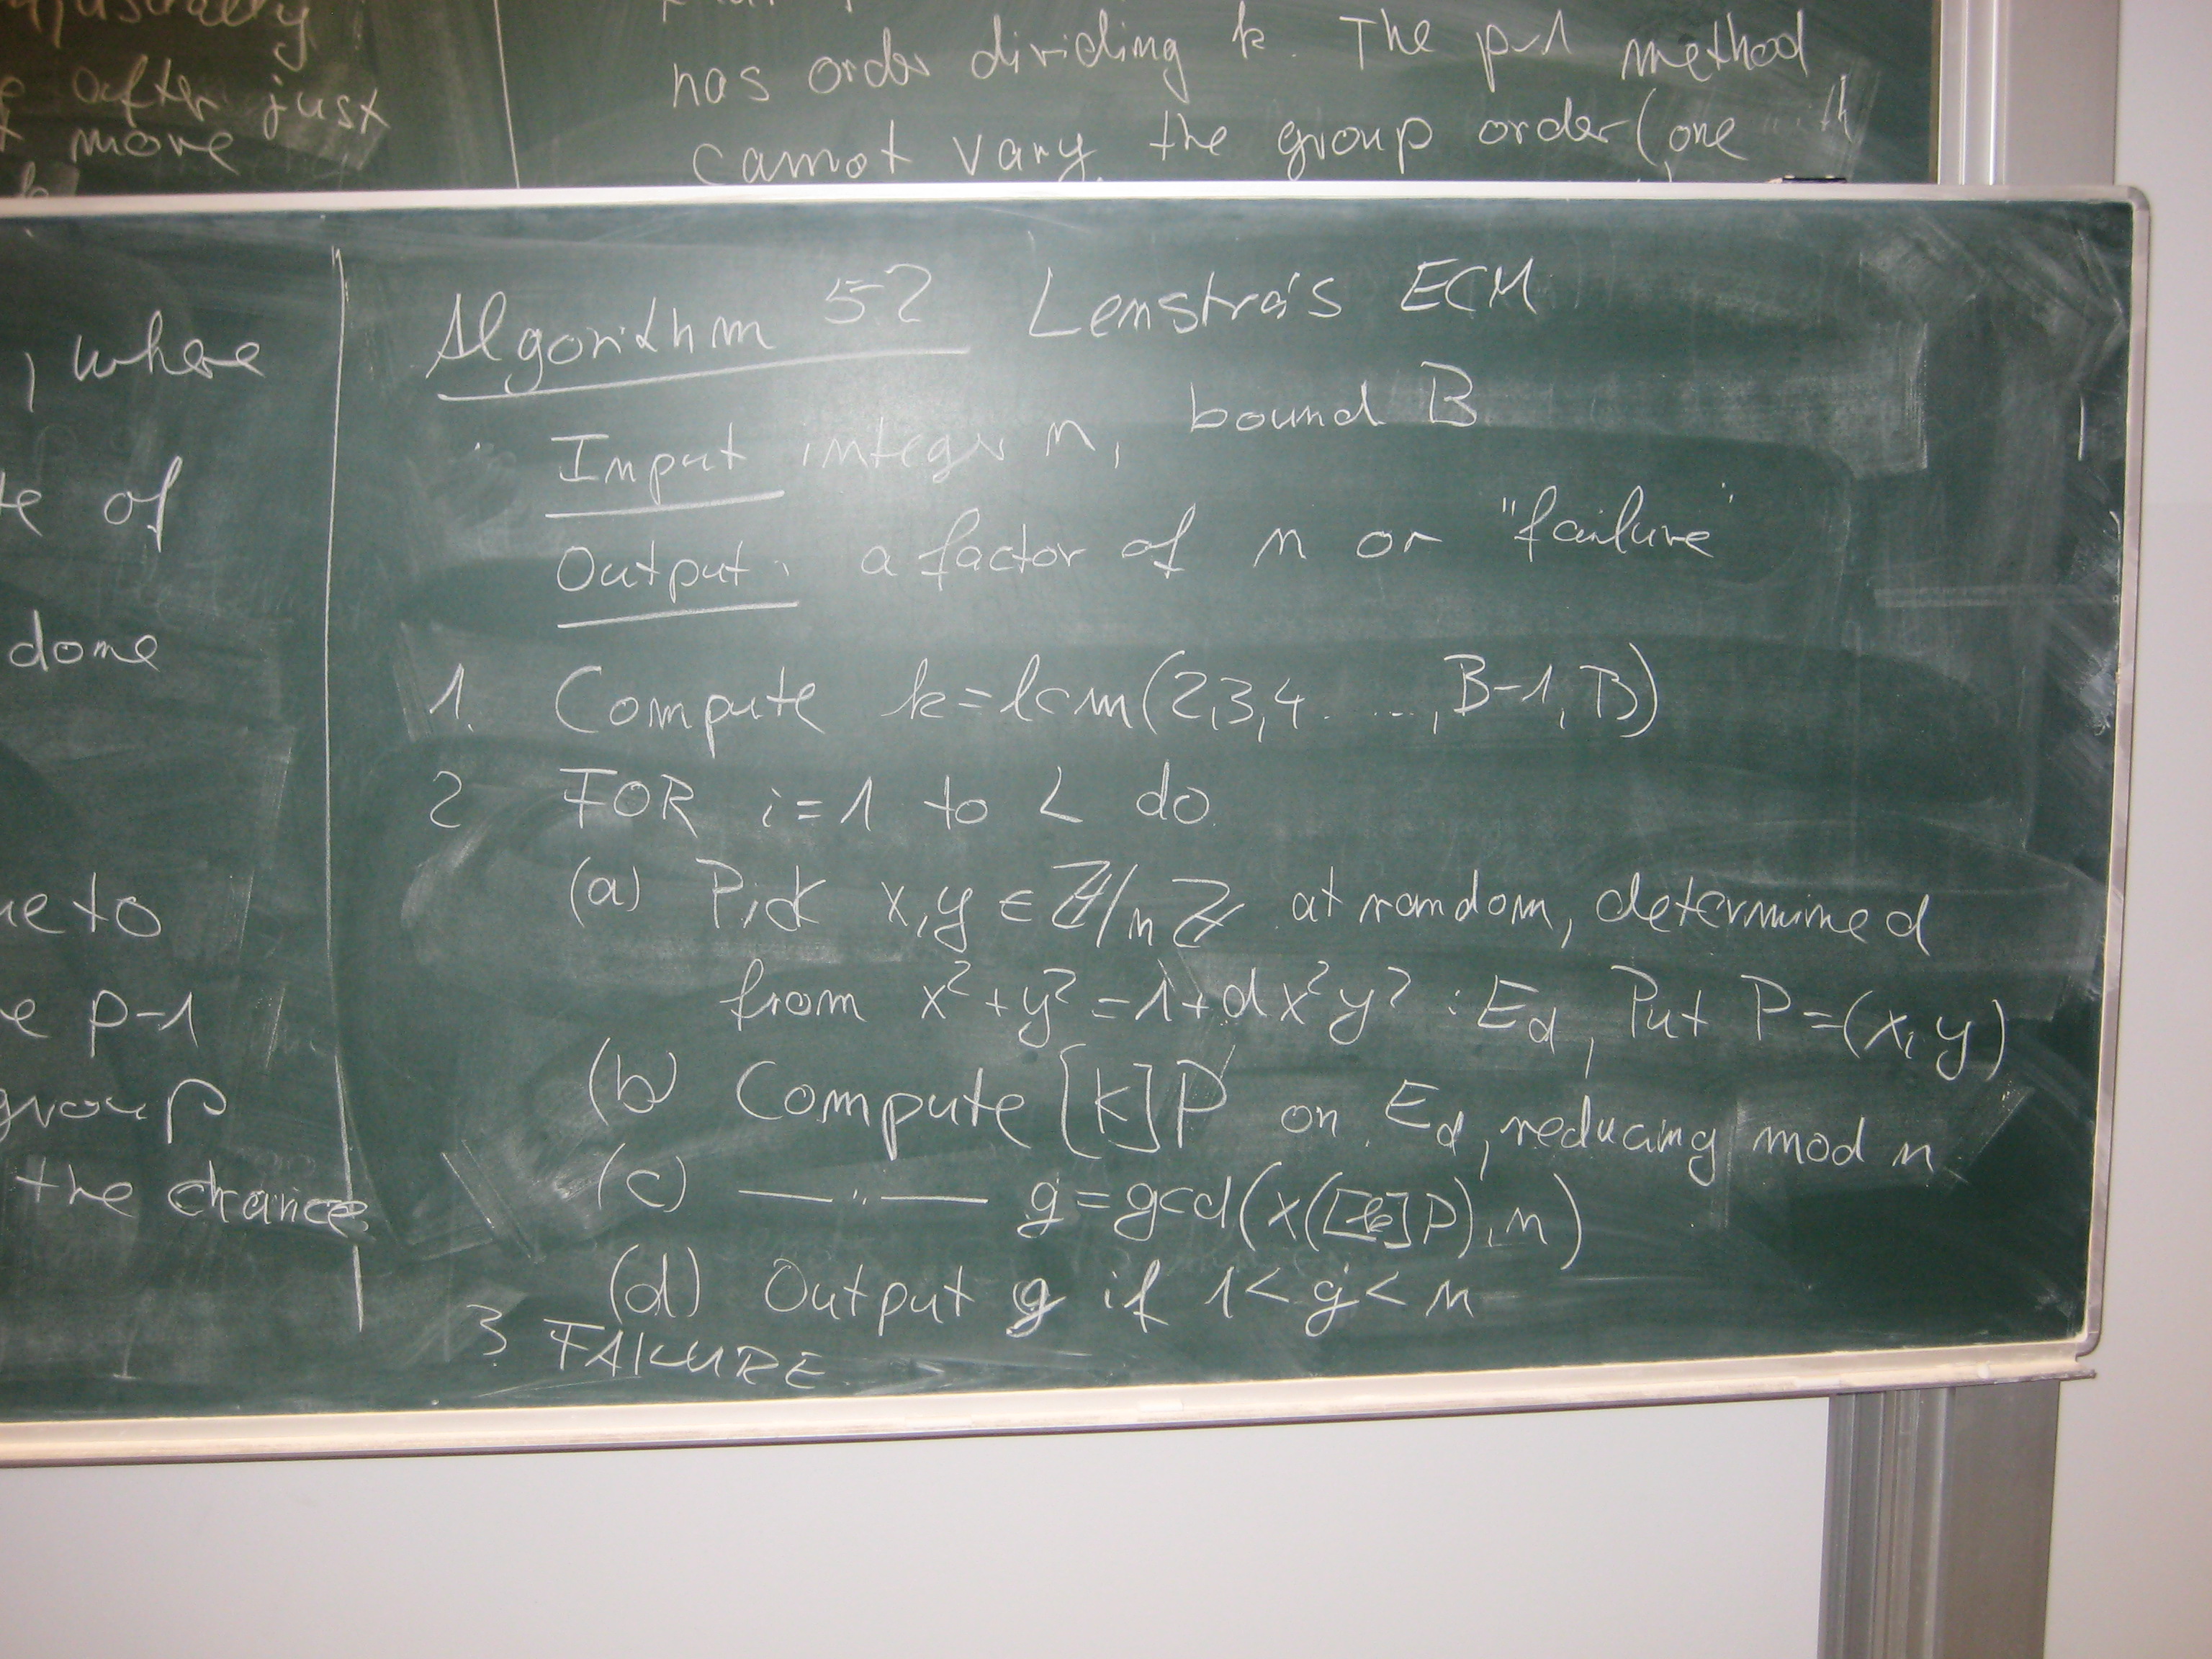 after just
move
has order dividing k. The p-1 method
cannot vary the group order (one
, where
of
done
to
p-1
group
the chance
Algorithm 52 Lenstra's ECM
Input integer n, bound B
Output: a factor of n or "failure"
1. Compute k=lcm(2,3,4. ...,B-1,B)
2 FOR i=1 to L do
(a) Pick x,y ∈ ℤ/nℤ at random, determined
from x²+y²=1+dx²y² : E_d, Put P=(x,y)
(b) Compute [k]P on E_d, reducing mod n
(c) —"— g=gcd(x([k]P),n)
(d) Output g if 1<g<n
3 FAILURE